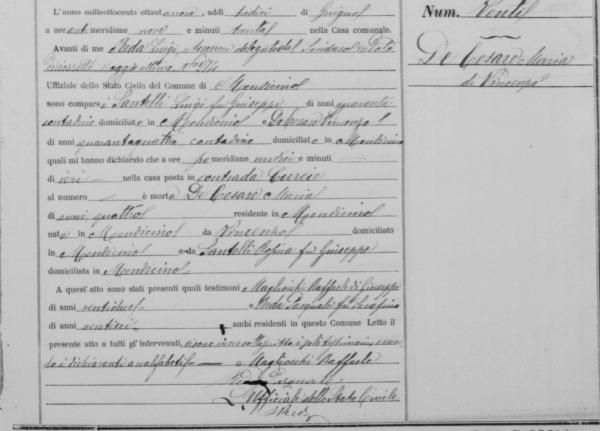 L'anno milleottocento ottantanove, addì tredici di Giugno
a ore anti meridiane nove e minuti trenta nella Casa comunale.
Avanti di me Reda Luigi, Assessore delegato dal Sindaco in data
Maggio ultimo, N°
Uffiziale dello Stato Civile del Comune di Mendicino
sono comparsi Santelli Luigi fu Giuseppe di anni quaranta
contadino domiciliato in Mendicino e De Cesare Vincenzo
di anni quarantaquattro, contadino domiciliato in Mendicino
quali mi hanno dichiarato che a ore po meridiane undici e minuti —
di ieri — nella casa posta in contrada Curcio
al numero — è morta De Cesare Maria
di anni quattro residente in Mendicino
nata in Mendicino da Vincenzo domiciliato
in Mendicino e da Santelli Rosina fu Giuseppe
domiciliata in Mendicino
A quest'atto sono stati presenti quali testimoni Magliocchi Raffaele di Giuseppe
di anni ventidue e Reda Pasquale fu Serafino
di anni ventisei ambi residenti in questo Comune Letto il
presente atto a tutti gl'intervenuti, si sono meco sottoscritti i soli testimoni, essen-
do i dichiaranti analfabeti —
Magliocchi Raffaele
Reda Pasquale
L'Uffiziale dello Stato Civile
L. Reda
Num. Venti
De Cesare Maria
di Vincenzo